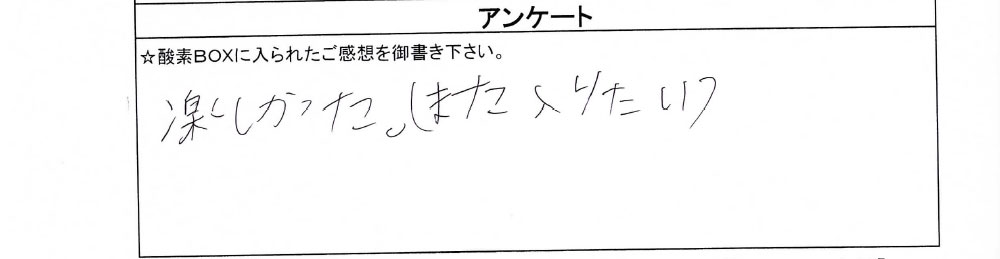 アンケート
☆酸素BOXに入られたご感想を御書き下さい。
楽しかった。また入りたい